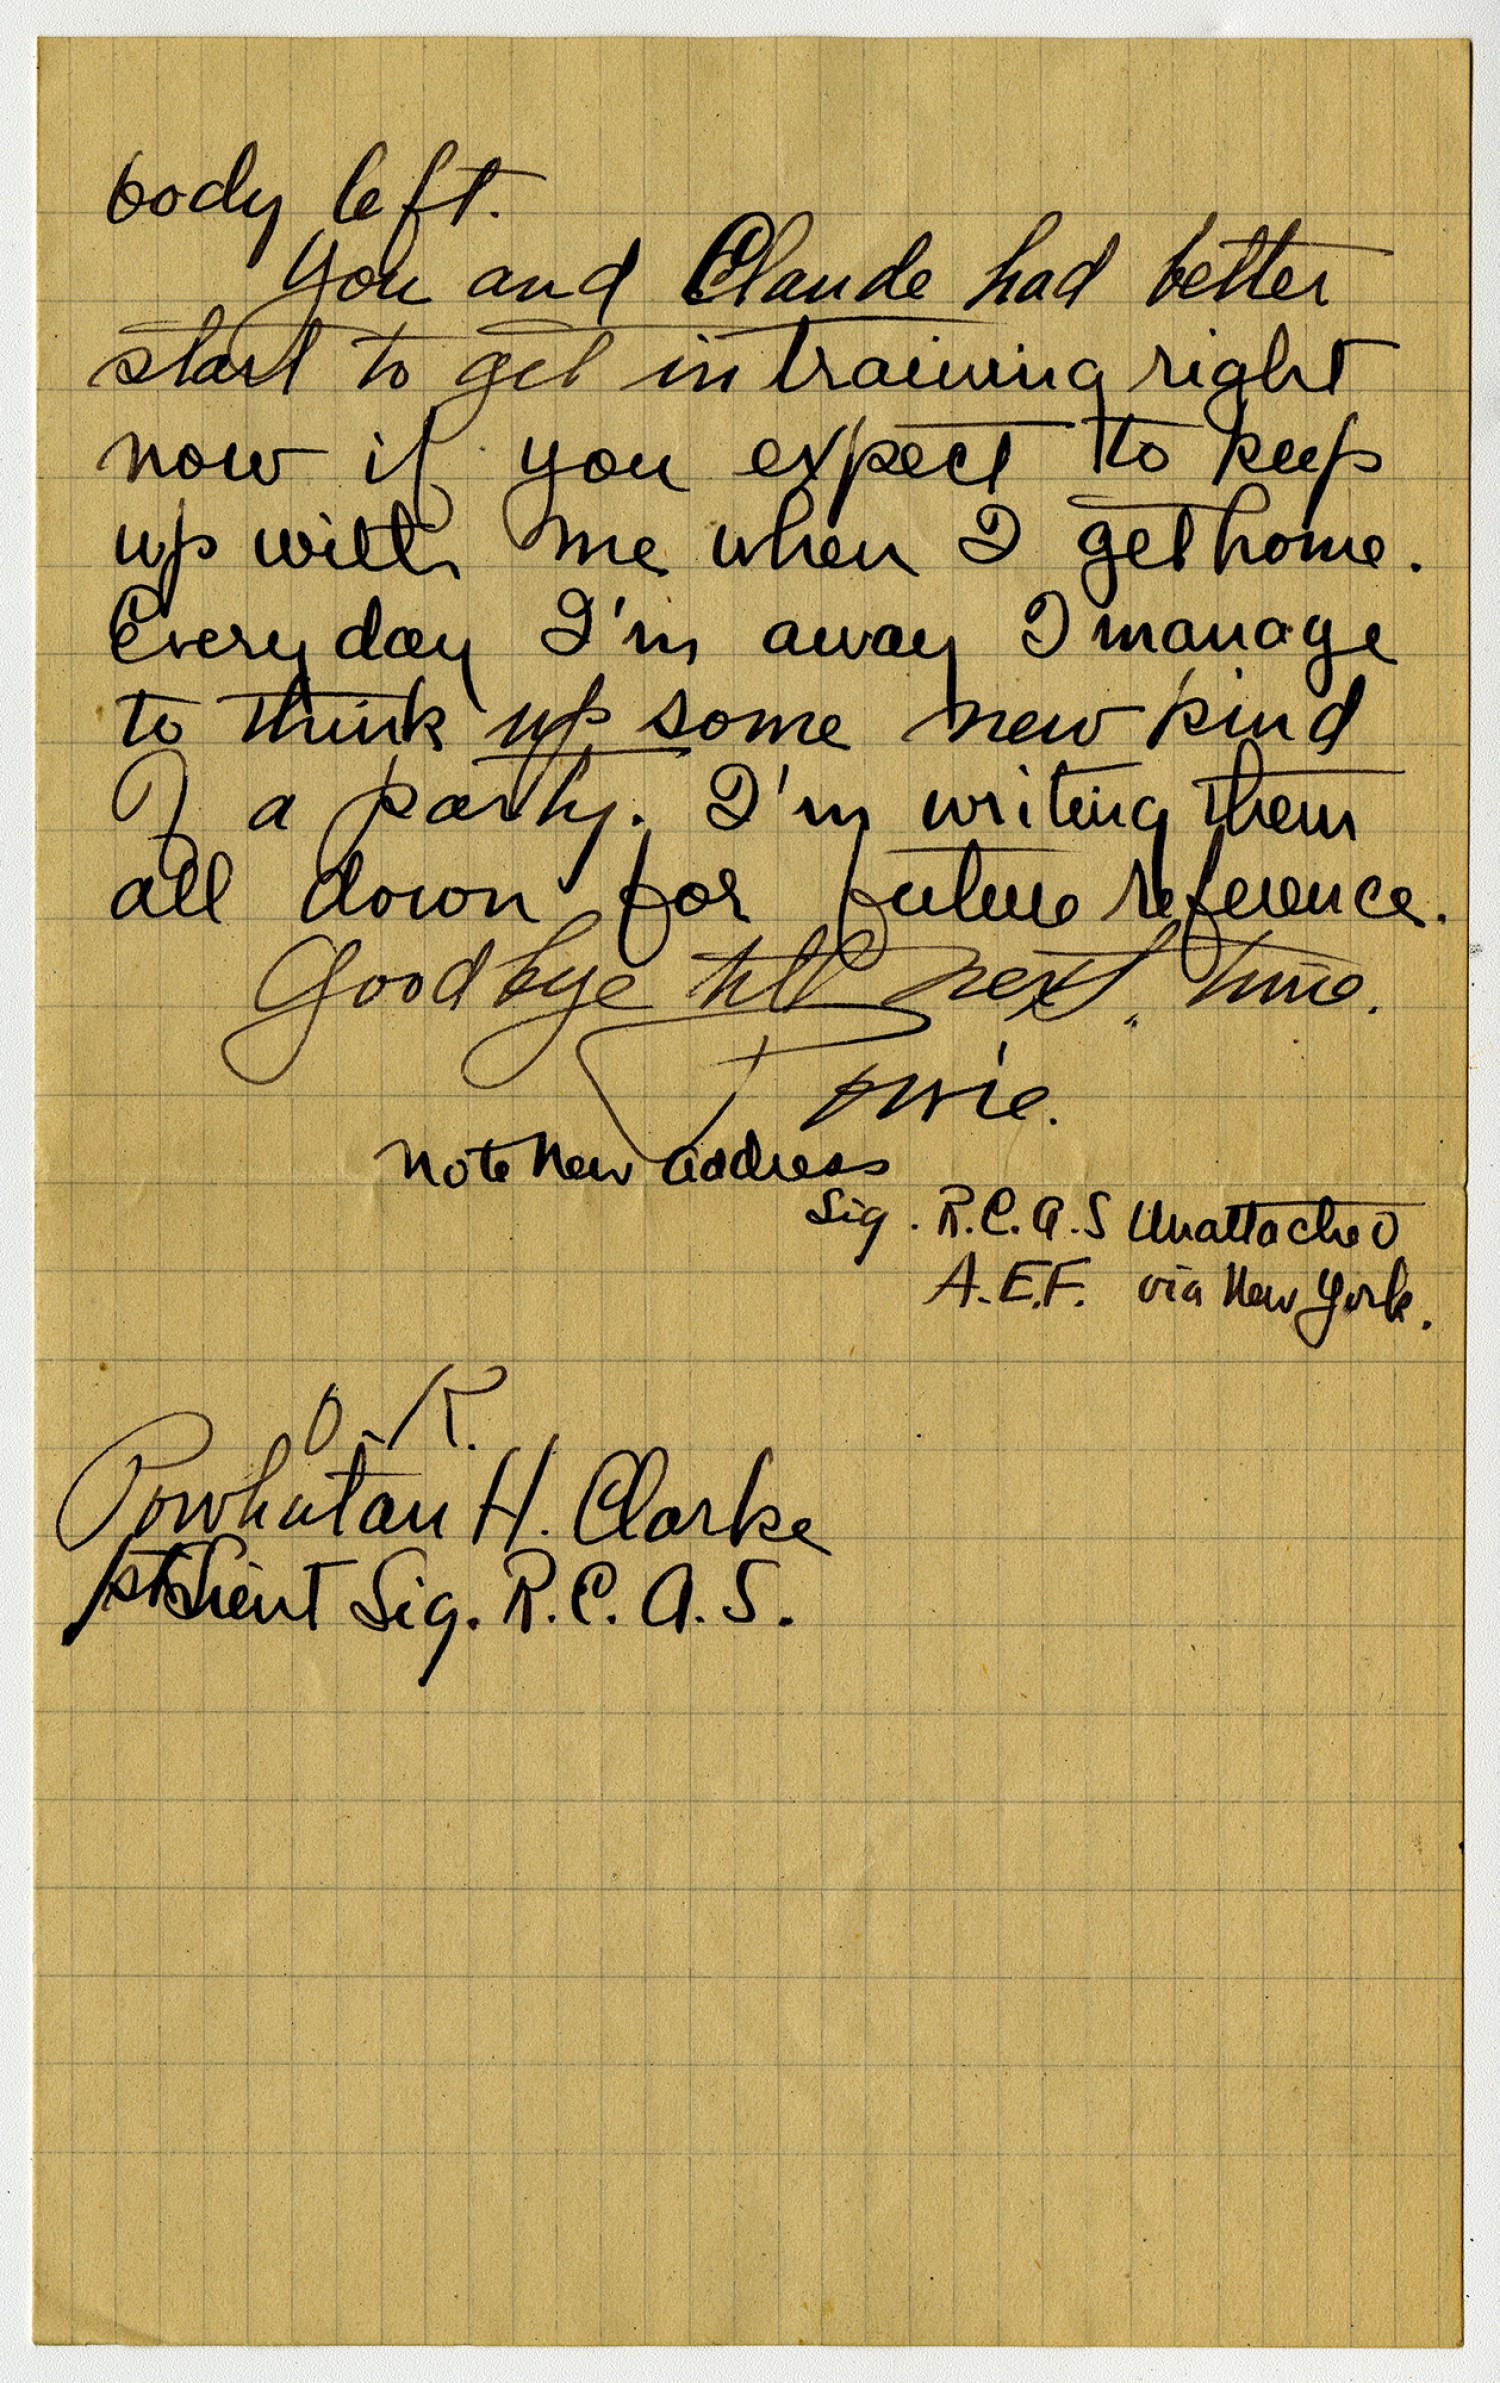 body left.
You and Claude had better
start to get in training right
now if you expect to keep
up with me when I get home.
Every day I'm away I manage
to think up some new kind
of a party. I'm writing them
all down for future reference.
Goodbye till next time.
Note New address
Sig. R.C.A.S Unattached
A.E.F. via New York.
O.K.
Powhatan H. Clarke
1st Lieut Sig. R.C.A.S.